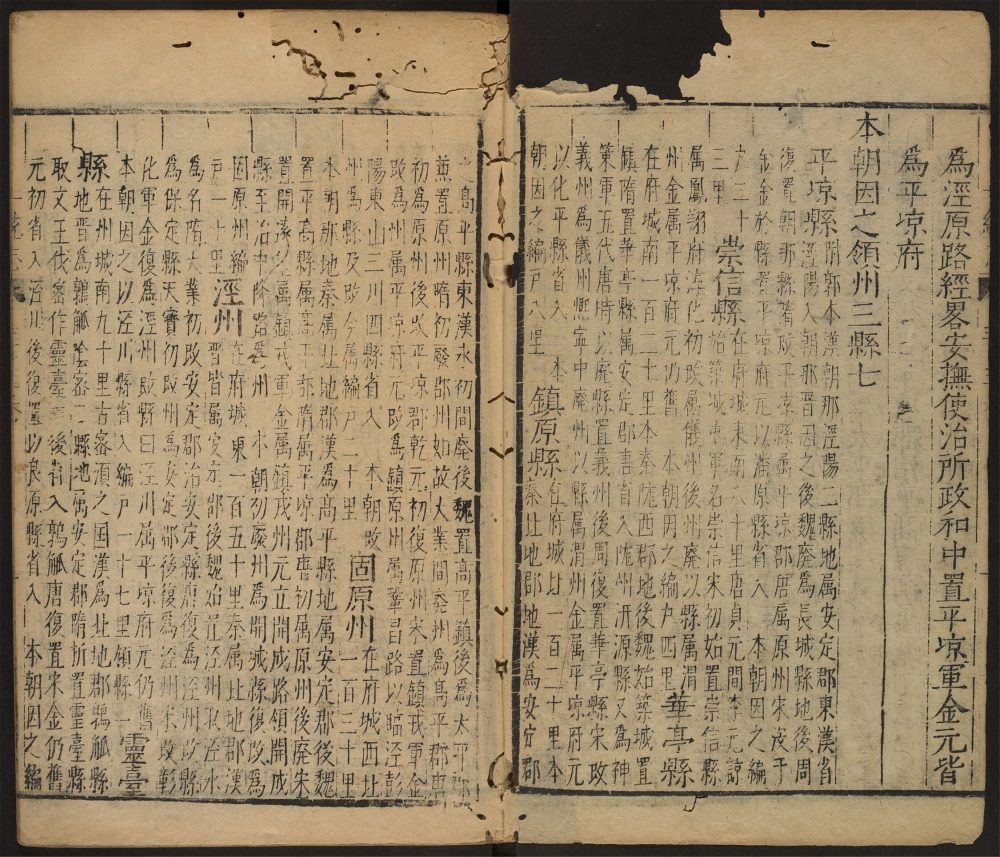 為涇原路經畧安撫使治所政和中置平凉軍金元皆
為平凉府
本朝因之領州三縣七
平凉縣附郭本漢朝那涇陽二縣地属安定郡東漢省
涇陽入朝那晉因之後魏廢為長城縣地後周
復置朝那縣隋改平凉縣属平凉郡唐属原州宋
金於縣置平凉府元以潘原縣省入 本朝因之編
户三十 里 崇信縣在府城東南 里唐貞元間李元諒
始築城 軍名崇信宋初始置崇信縣
属鳳翔府淳化初改属儀州後州廢以縣属渭
州金属平凉府元仍舊 本朝因之編户四里 華亭縣
在府城南一百二十里本秦隴西郡地後魏始築城置
鎮隋置華亭縣属安定郡唐省入隴州汧源縣又為神
策軍五代唐時以廢縣置義州後周復置華亭縣宋改
義州為儀州熈寧中廢州以縣属渭州金属平凉府元
以化平縣省入 本
朝因之編户八里 鎮原縣在府城北一百二十里本
秦北地郡地漢為安定郡
之高平縣東漢永初間廢後魏置高平鎮後為太平郡
兼置原州隋初廢郡州如故大業間廢州為高平郡唐
初為原州後改平凉郡乾元初復原州宋置鎮戎軍金
改為州属平凉府元改為鎮原州属鞏昌路以臨涇彭
陽東山三川四縣省入 本朝改
州為縣及改今属編户二十里 固原州在府城西北
一百三十里
本朝那地秦属北地郡漢為高平縣地属安定郡後魏
置平高縣属高平郡隋属平凉郡唐初属原州後廢宋
置開遠堡属鎮戎軍金属鎮戎州元立開成路領開成
縣至治中降路為州 本朝初廢州為開城縣復改為
固原州編
户一十里 涇州在府城東一百五十里秦属北地郡漢
晉皆属安定郡後魏始置涇州取涇水
為名隋大業初改安定郡治安定縣唐復為涇州改
為保定縣天寶初改州為安定郡後復為涇州宋改彰
化軍金復為涇州改縣曰涇川属平凉府元仍舊
本朝因之以涇川縣省入編户一十七里領縣一 靈臺
縣在州城南九十里古密湏之国漢為北地郡鶉觚縣
地晉為鶉觚隂密二縣地属安定郡隋析置靈臺縣
取文王伐密作靈臺 後省入鶉觚唐復置宋金仍舊
元初省入涇川後復置以良原縣省入 本朝因之編